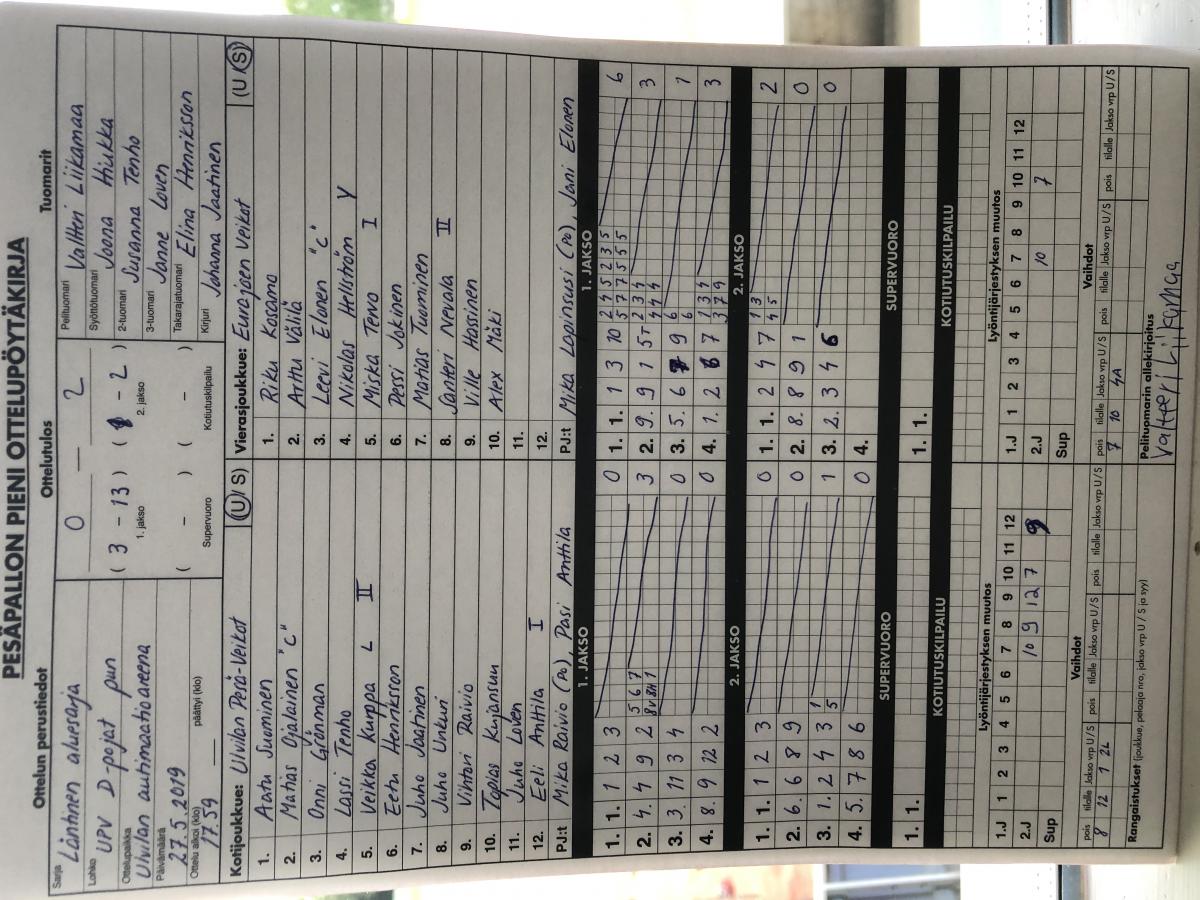 PESÄPALLON PIENI OTTELUPÖYTÄKIRJA
Ottelun perustiedot
Ottelutulos
Tuomarit
Sarja
Läntinen aluesarja
Lohko
UPV D-pojat pun
Ottelupaikka
Ulvilan automaatioareena
Päivämäärä
27.5.2019
Ottelu alkoi (klo) päättyi (klo)
17.59
0 — 2
( 3 - 13 ) ( - 2 )
1. jakso 2. jakso
( - ) ( - )
Supervuoro Kotiutuskilpailu
Pelituomari
Valtteri Liikamaa
Syöttötuomari
Joona Hiukka
2-tuomari
Susanna Tenho
3-tuomari
Janne Loven
Takarajatuomari
Elina Henriksson
Kirjuri
Johanna Jaatinen
Kotijoukkue: Ulvilan Pesä-Veikot (U/ S)
1. Aatu Suominen
2. Matias Ojalainen "C"
3. Onni Grönman
4. Lassi Tenho
5. Veikka Kurppa L II
6. Eetu Henriksson
7. Juho Jaatinen
8. Juho Unkuri
9. Vihtori Raivio
10. Topias Kujansuu
11. Juho Loven
12. Eeli Anttila I
PJ:t Mika Raivio (Po), Pasi Anttila
Vierasjoukkue: Eurajoen Veikot (U /S)
1. Riku Kosamo
2. Arttu Välilä
3. Leevi Elonen "c"
4. Nikolas Hellström Y
5. Miska Tervo I
6. Pessi Jokinen
7. Matias Tuominen
8. Santeri Nevala II
9. Ville Hassinen
10. Alex Mäki
11.
12.
PJ:t Mika Lapinsusi (Po), Jani Elonen
1. JAKSO
1. 1. 1 2 3 0
2. 4 9 2 5 6 7 3
3. 11 3 4 0
4. 8. 9 12 2 0
2. JAKSO
1. 1. 1 2 3 0
2. 6. 6 8 9 0
3. 1. 2 4 3 1 5 1
4. 5. 7 8 6 0
SUPERVUORO
1. 1.
KOTIUTUSKILPAILU
1. JAKSO
1. 1. 1 3 10 2 4 5 2 3 5 6
5 7 7 5 5 5
2. 9. 9 1 5T 2 3 4 3
4 4 4
3. 5. 6 9 6 1
6
4. 1. 2 7 1 3 4 3
3 7 9
2. JAKSO
1. 1. 2 4 7 1 3 2
4 5
2. 8. 8 9 1 0
3. 2. 3 4 6 0
4.
SUPERVUORO
1. 1.
KOTIUTUSKILPAILU
Lyöntijärjestyksen muutos
1.J 1 2 3 4 5 6 7 8 9 10 11 12
2.J 10 9 12 7
Sup
Vaihdot
pois tilalle Jakso vrp U/S pois tilalle Jakso vrp U/S pois tilalle Jakso vrp U/S
8 12 1 2L
Rangaistukset (joukkue, pelaaja nro, jakso vrp U / S ja syy)
Lyöntijärjestyksen muutos
1.J 1 2 3 4 5 6 7 8 9 10 11 12
2.J 10 7
Sup
Vaihdot
pois tilalle Jakso vrp U/S pois tilalle Jakso vrp U/S pois tilalle Jakso vrp U/S
7 10 4A
Pelituomarin allekirjoitus
Valtteri Liikamaa